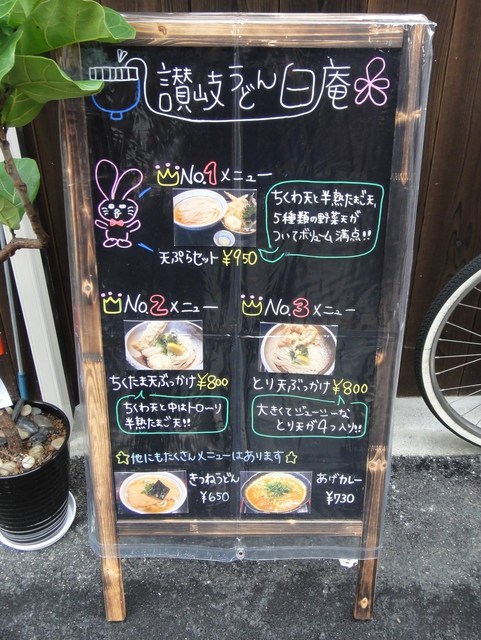 讃岐うどん 白庵
No.1メニュー
ちくわ天と半熟たまご天、
5種類の野菜天が
ついてボリューム満点!!
天ぷらセット ¥950
No.2メニュー
ちくたま天ぶっかけ ¥800
ちくわ天と中はトローリ
半熟たまご天!!
No.3メニュー
とり天ぶっかけ ¥800
大きくてジューシーな
とり天が4つ入り!!
☆他にもたくさんメニューはあります☆
きつねうどん
¥650
あげカレー
¥730